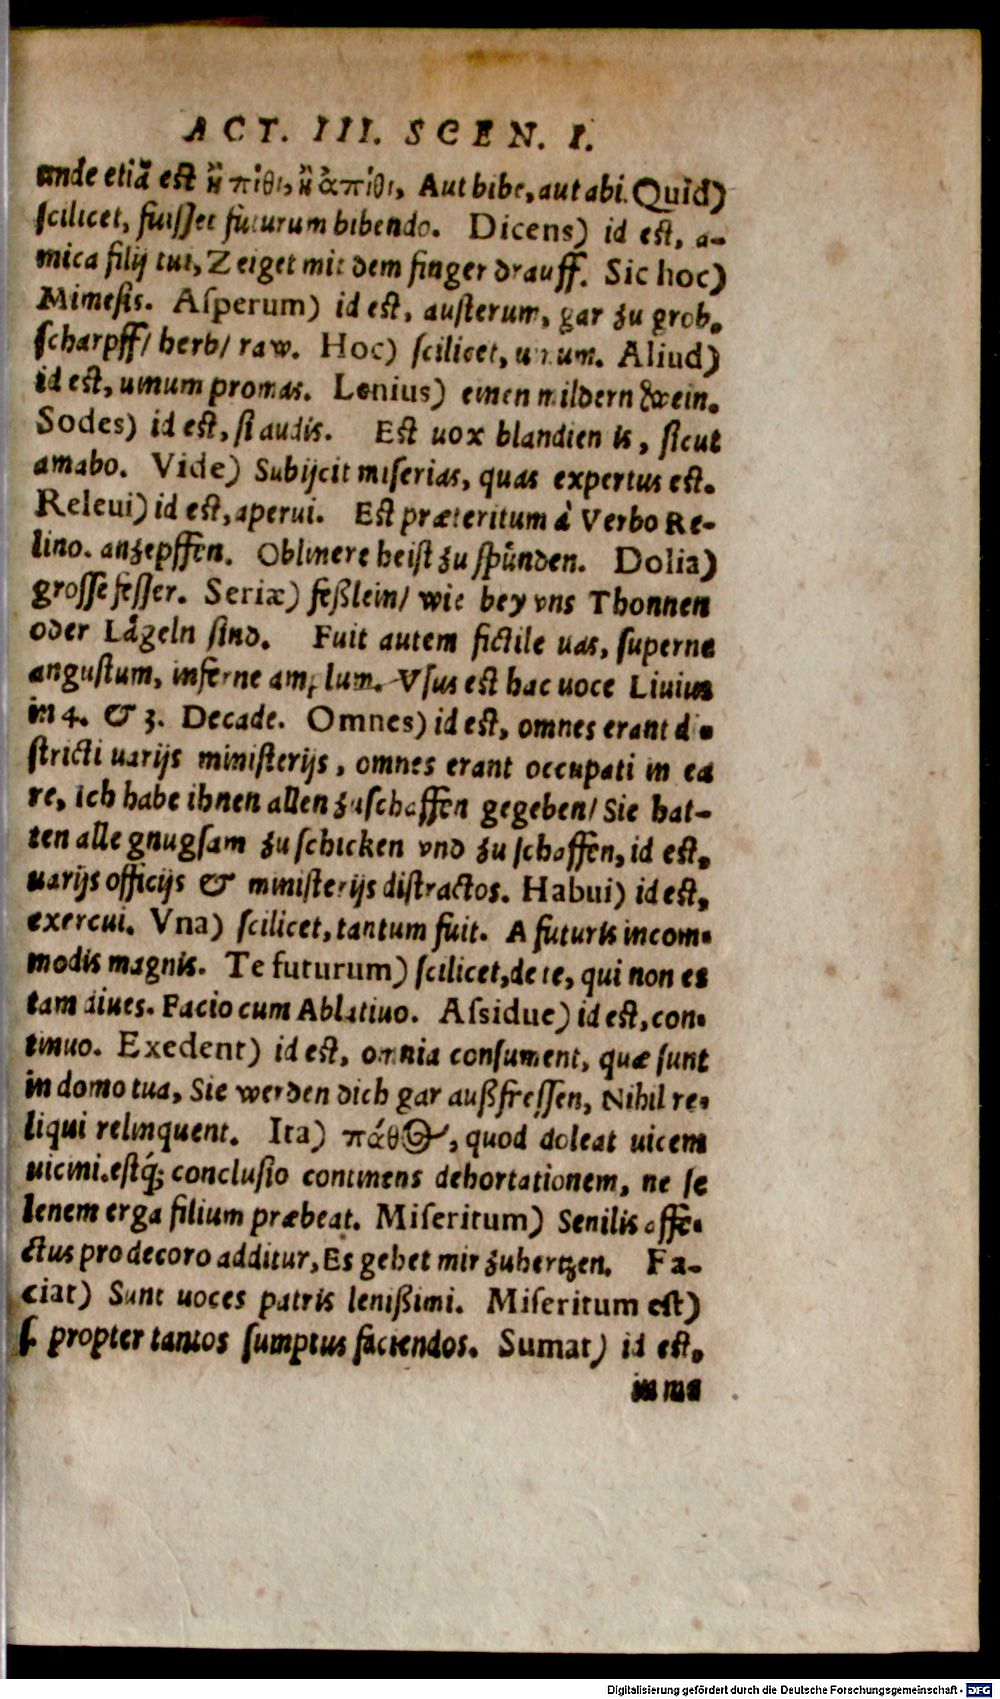 ACT. III. SCEN. I.
unde etiã est ἢ πῖθι, ἢ ἄπιθι, Aut bibe, aut abi. Quid)
scilicet, fuisset futurum bibendo. Dicens) id est, a-
mica filij tui, Zeiget mit dem finger drauff. Sic hoc)
Mimesis. Asperum) id est, austerum, gar zu grob,
scharpff/ herb/ raw. Hoc) scilicet, uinum. Aliud)
id est, uinum promas. Lenius) einen mildern Wein.
Sodes) id est, si audis. Est uox blandientis, sicut
amabo. Vide) Subijcit miserias, quas expertus est.
Releui) id est, aperui. Est præteritum à Verbo Re-
lino. anzepffen. Oblinere heist zu spünden. Dolia)
grosse fesser. Seriæ) feßlein/ wie bey vns Thonnen
oder Lägeln sind. Fuit autem fictile uas, superne
angustum, inferne amplum. Vsus est hac uoce Liuius
in 4. & 3. Decade. Omnes) id est, omnes erant di-
stricti uarijs ministerijs, omnes erant occupati in ea
re, ich habe ihnen allen zuschaffen gegeben/ Sie hat-
ten alle gnugsam zu schicken vnd zu schaffen, id est,
uarijs officijs & ministerijs distractos. Habui) id est,
exercui. Vna) scilicet, tantum fuit. A futuris incom-
modis magnis. Te futurum) scilicet, de te, qui non es
tam diues. Facio cum Ablatiuo. Assidue) id est, con-
tinuo. Exedent) id est, omnia consument, quæ sunt
in domo tua, Sie werden dich gar außfressen, Nihil re-
liqui relinquent. Ita) πάθος, quod doleat uicem
uicini. estq́; conclusio continens dehortationem, ne se
lenem erga filium præbeat. Miseritum) Senilis affe-
ctus pro decoro additur, Es gehet mir zuhertzen. Fa-
ciat) Sunt uoces patris lenißimi. Miseritum est)
s. propter tantos sumptus faciendos. Sumat) id est,
in me
Digitalisierung gefördert durch die Deutsche Forschungsgemeinschaft - DFG